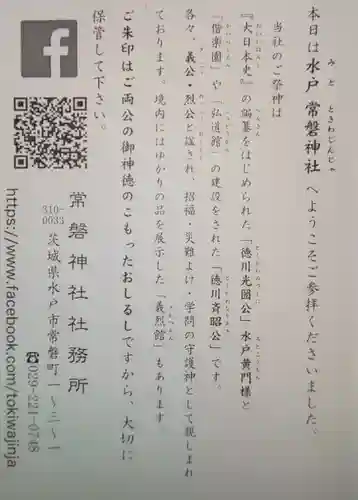 本日は水戸常磐神社へようこそご参拝くださいました。
当社のご祭神は
『大日本史』の編纂をはじめられた「徳川光圀公」水戸黄門様と
「偕楽園」や「弘道館」の建設をされた「徳川斉昭公」です。
各々、義公・烈公と謚され、招福・災難よけ・学問の守護神として親しまれ
ております。境内にはゆかりの品を展示した「義烈館」もあります
ご朱印はご両公の御神徳のこもったおしるしですから、大切に
保管して下さい。
常磐神社社務所
310-0033 茨城県水戸市常磐町一～三～一
☎029-221-0748
https://www.facebook.com/tokiwajinja
f